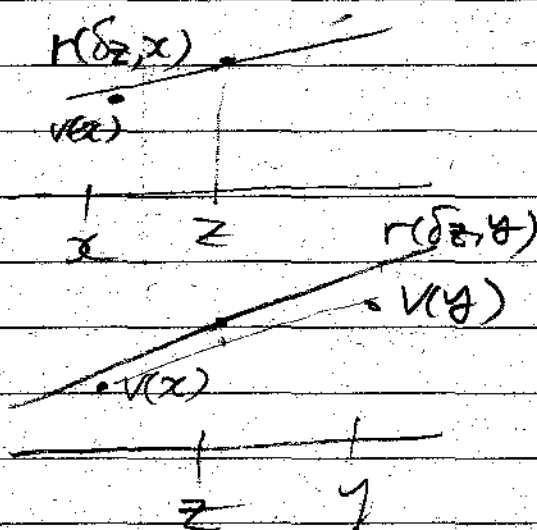 r(δz,x)
v(x)
x z
r(δz,y)
v(y)
v(x)
z y